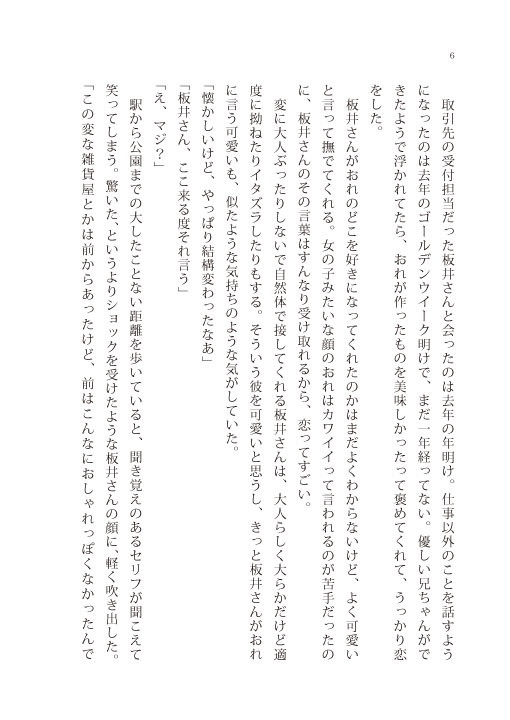 6
　取引先の受付担当だった板井さんと会ったのは去年の年明け。仕事以外のことを話すよう
になったのは去年のゴールデンウイーク明けで、まだ一年経ってない。優しい兄ちゃんがで
きたようで浮かれてたら、おれが作ったものを美味しかったって褒めてくれて、うっかり恋
をした。
　板井さんがおれのどこを好きになってくれたのかはまだよくわからないけど、よく可愛い
と言って撫でてくれる。女の子みたいな顔のおれはカワイイって言われるのが苦手だったの
に、板井さんのその言葉はすんなり受け取れるから、恋ってすごい。
　変に大人ぶったりしないで自然体で接してくれる板井さんは、大人らしく大らかだけど適
度に拗ねたりイタズラしたりもする。そういう彼を可愛いと思うし、きっと板井さんがおれ
に言う可愛いも、似たような気持ちのような気がしていた。
「懐かしいけど、やっぱり結構変わったなあ」
「板井さん、ここ来る度それ言う」
「え、マジ？」
　駅から公園までの大したことない距離を歩いていると、聞き覚えのあるセリフが聞こえて
笑ってしまう。驚いた、というよりショックを受けたような板井さんの顔に、軽く吹き出した。
「この変な雑貨屋とかは前からあったけど、前はこんなにおしゃれっぽくなかったんで